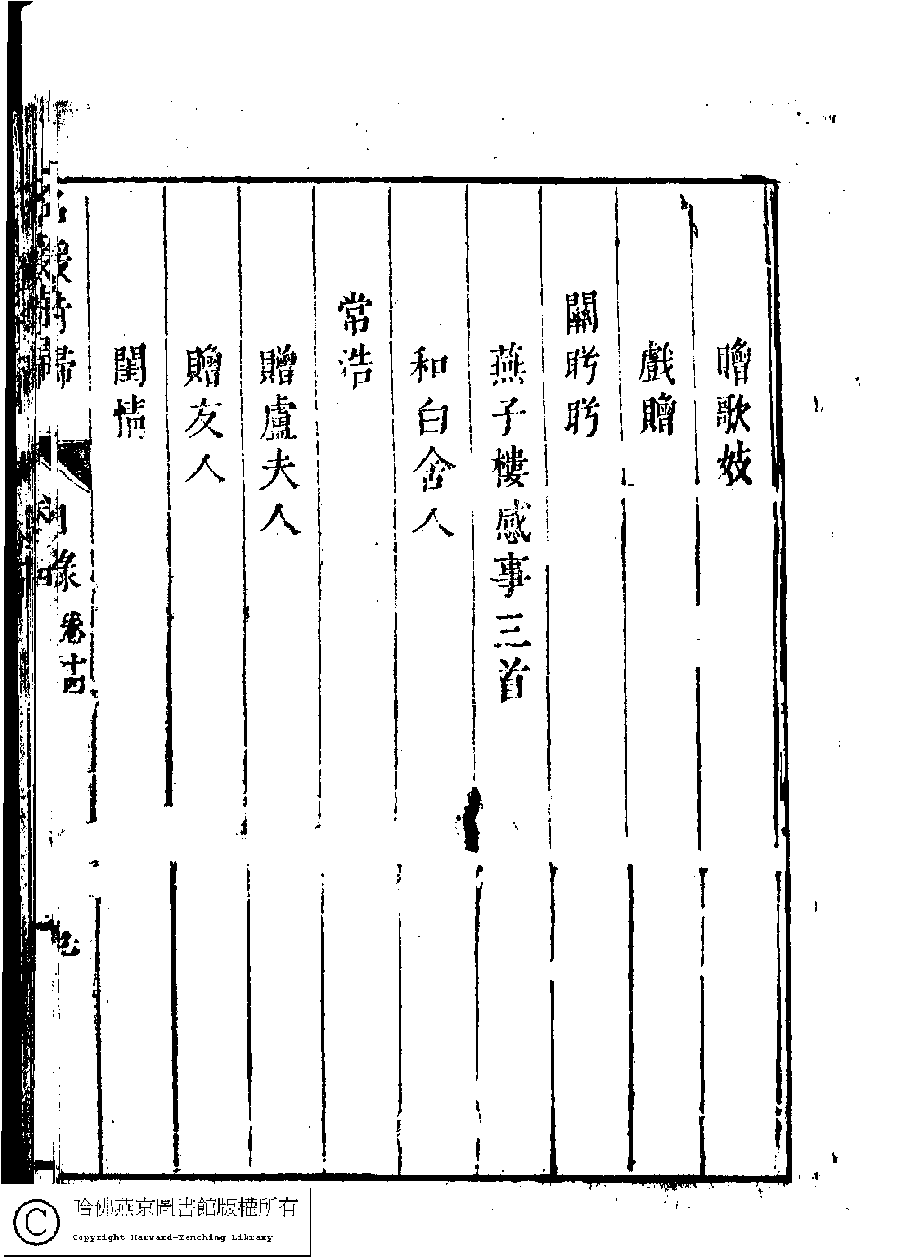 贈歌妓
戲贈
關盻盻
燕子樓感事三首
和白舍人
常浩
贈盧夫人
贈友人
閨情
名媛詩歸 目錄 卷十四
哈佛燕京圖書館版權所有
Copyright Harvard-Yenching Library